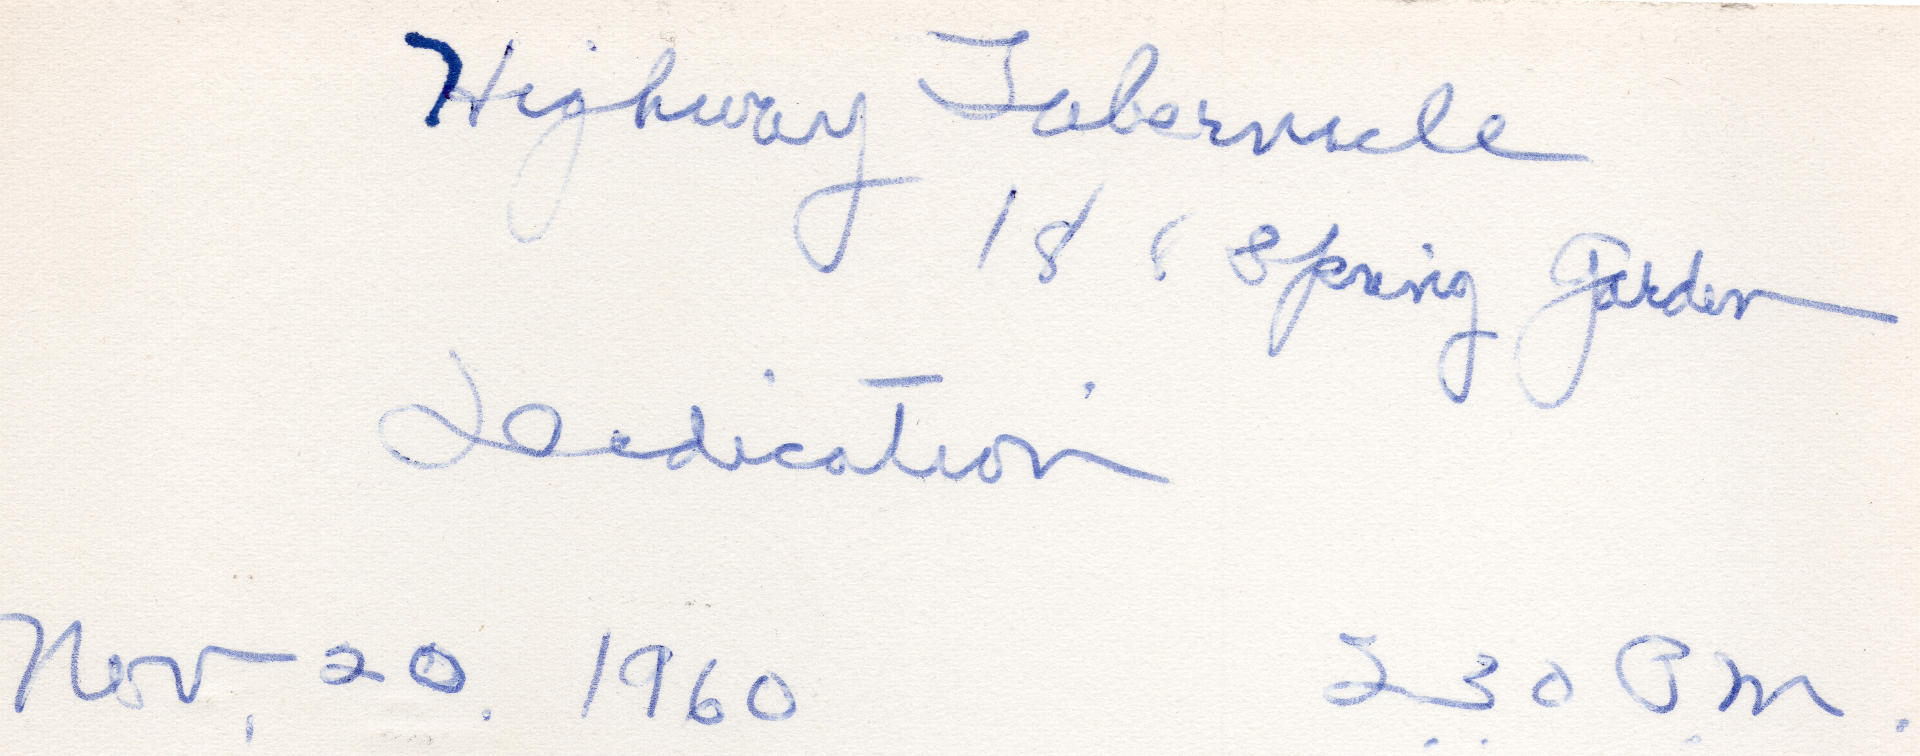 Highway Tabernacle
18 & Spring Garden
Dedication
Nov, 20. 1960 2:30 P.M.